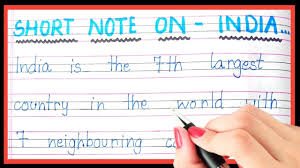 SHORT NOTE ON - INDIA...
India is the 7th largest
country in the world with
7 neighbouring